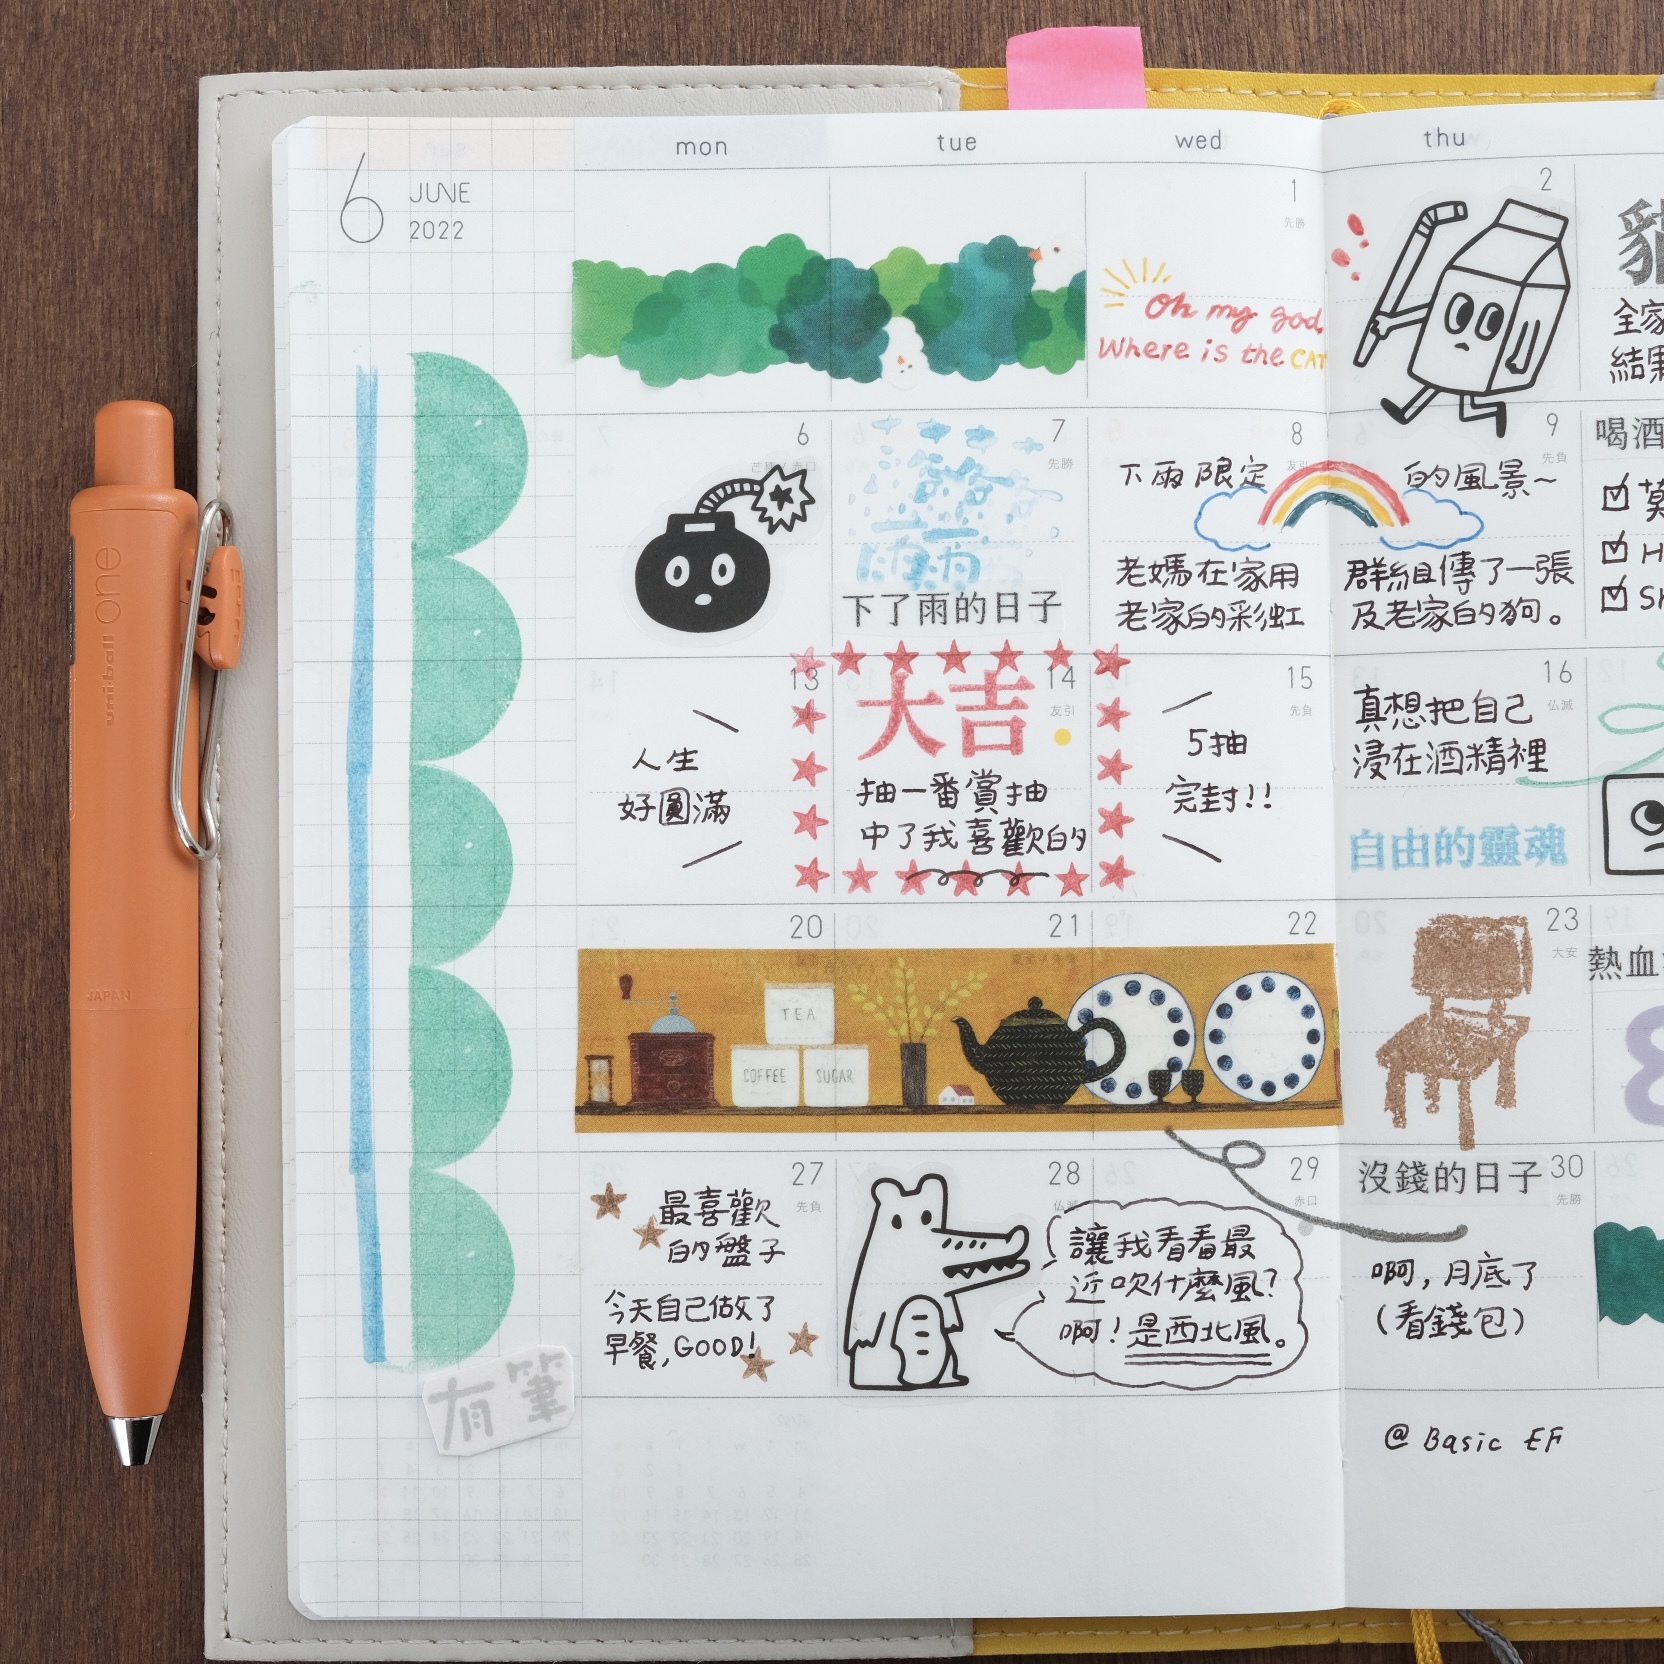 mon
tue
wed
thu
6
JUNE
2022
1
先勝
Oh my god,
Where is the CAT
2
全家
結果
6
7
先勝
下了雨的日子
8
友引
下雨限定
老媽在家用
老家的彩虹
9
先負
的風景~
群組傳了一張
及老家的狗。
喝酒
13
人生
好圓滿
14
友引
大吉
抽一番賞抽
中了我喜歡的
15
先負
5抽
完封!!
16
仏滅
真想把自己
浸在酒精裡
自由的靈魂
20
21
22
TEA
COFFEE
SUGAR
23
大安
熱血
27
先負
最喜歡
的盤子
今天自己做了
早餐,GOOD!
28
仏滅
29
赤口
讓我看看最
近吹什麼風?
啊!是西北風。
沒錢的日子
30
先勝
啊,月底了
(看錢包)
@ Basic EF
有筆
uni-ball one
JAPAN